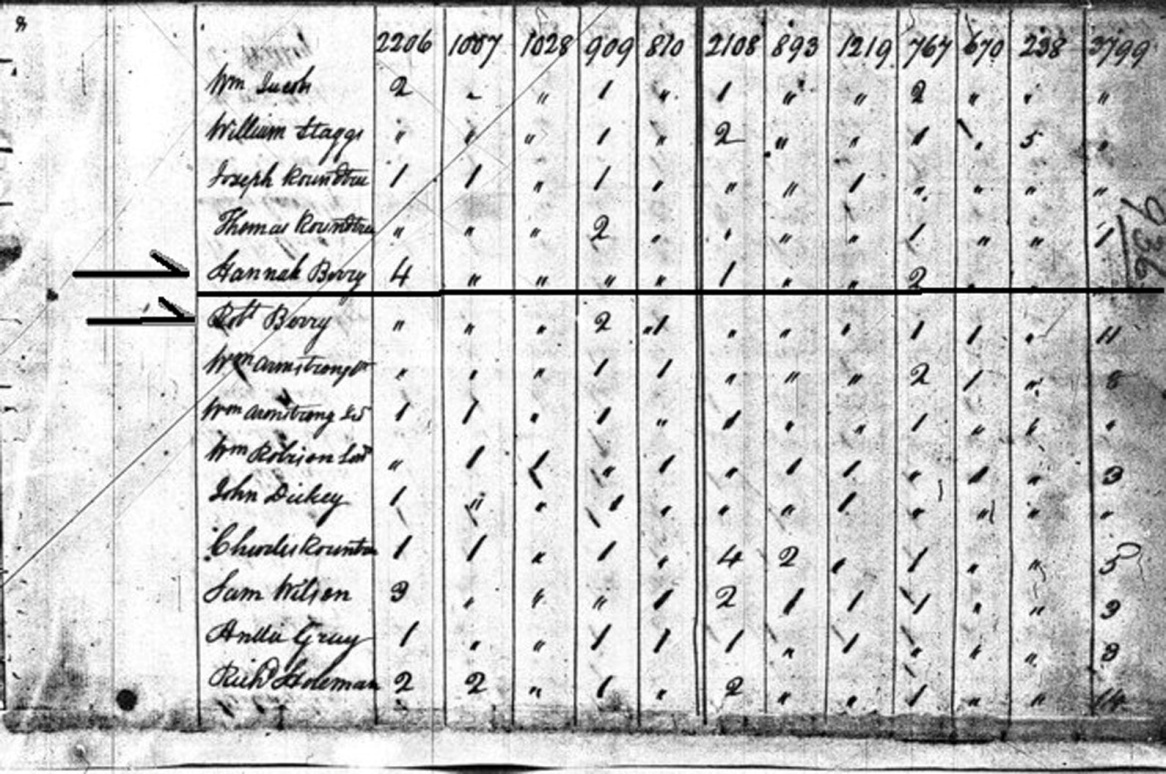 2206 1007 1028 909 810 2108 893 1219 767 670 238 3799
Wm Jacob 2 " " 1 " 1 " " 2 " " "
William Staggs " " " 1 " 2 " " 1 " 5 "
Joseph Roundtree 1 1 " 1 " " " 1 " " " "
Thomas Roundtree " " " 2 " " " " 1 " " 1
Hannah Berry 4 " " " " 1 " " 2 "
Robt Berry " " " 2 1 " " " 1 1 " 11
Wm Armstrong " " " 1 1 " " " 2 1 " 8
Wm Armstrong 1 1 " 1 " 1 " " 1 " 1 "
Wm Robison " 1 1 " 1 " 1 1 " 1 " 3
John Dickey 1 " " 1 " " " 1 " " " "
Charles 1 1 " 1 " 4 2 " 1 " " 5
Sam Wilson 3 " " " 1 2 1 1 1 " " 9
Gray 1 " " 1 1 1 " 1 " " " 8
Richd Holeman 2 2 " 1 " 2 " " 1 " " 14
936